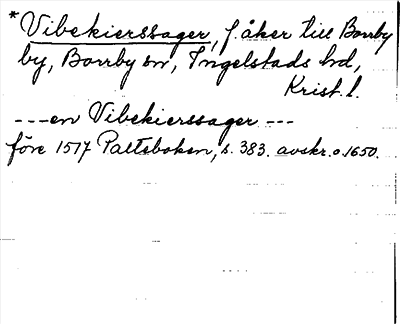 *Vibekierssager, f. åker till Borrby
by, Borrby sn, Ingelstads hd,
Krist. l.
---en Vibekierssager ---
före 1517 Paltebokem, s. 383. avskr. o. 1650.